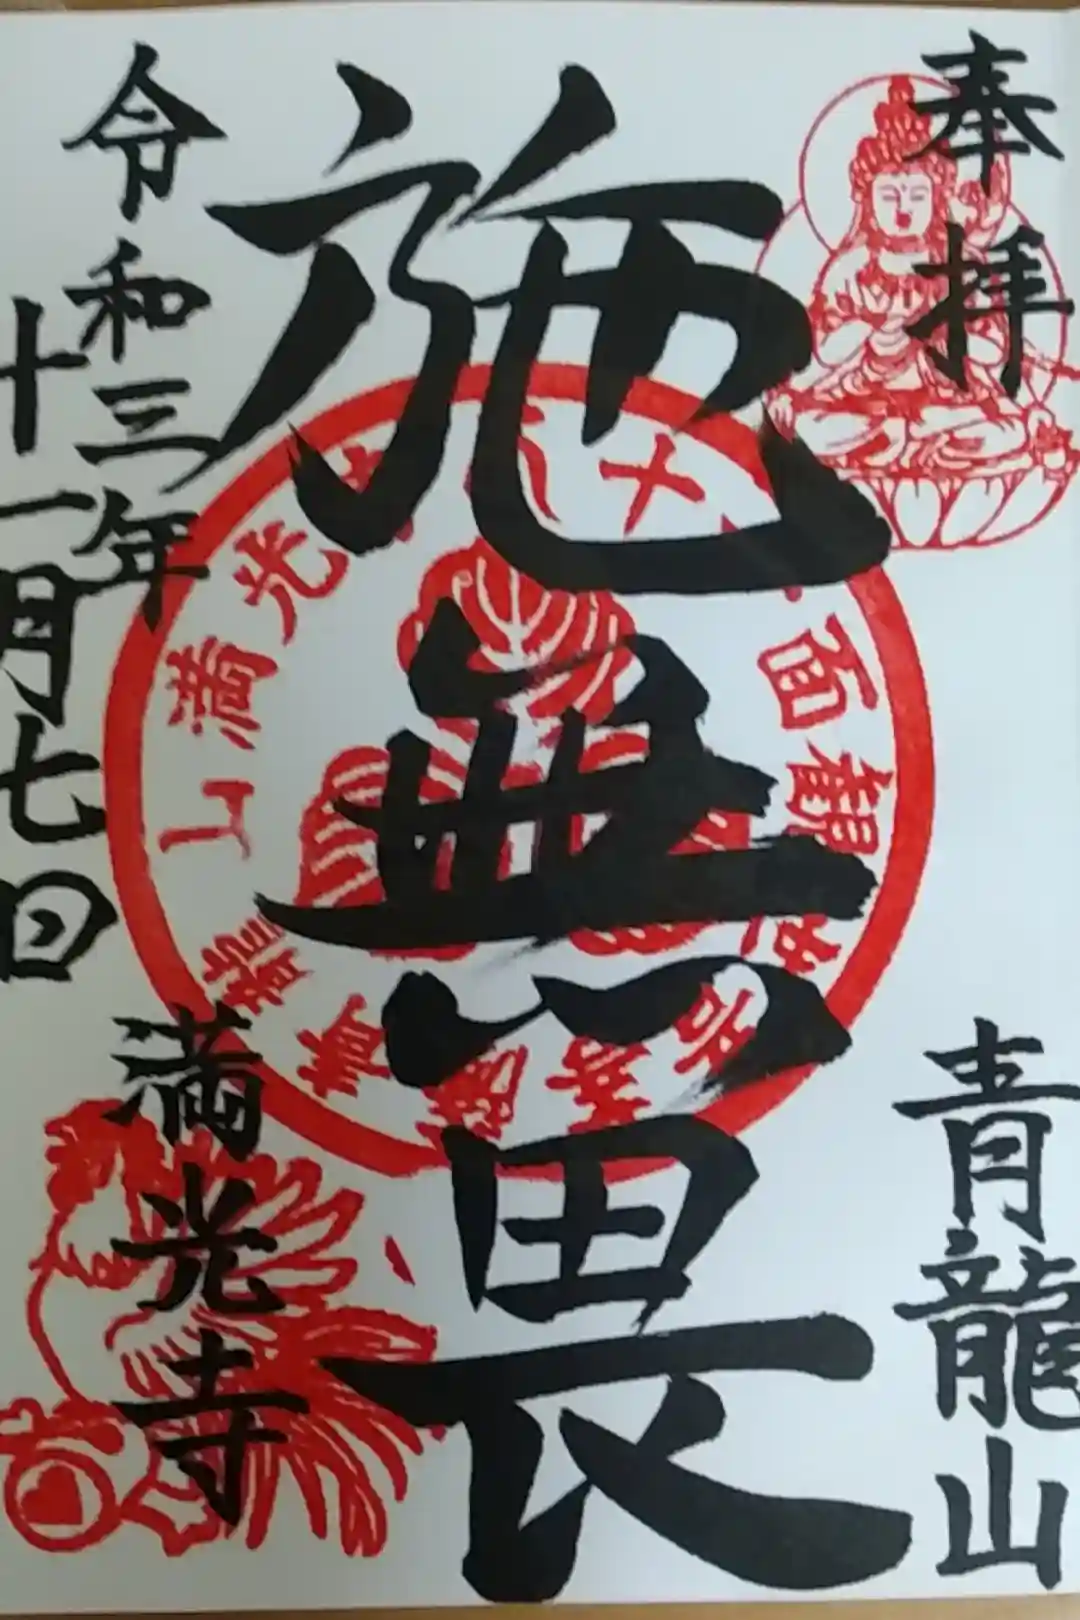 奉拝
青龍山
施無畏
令和三年
十一月七日
満光寺